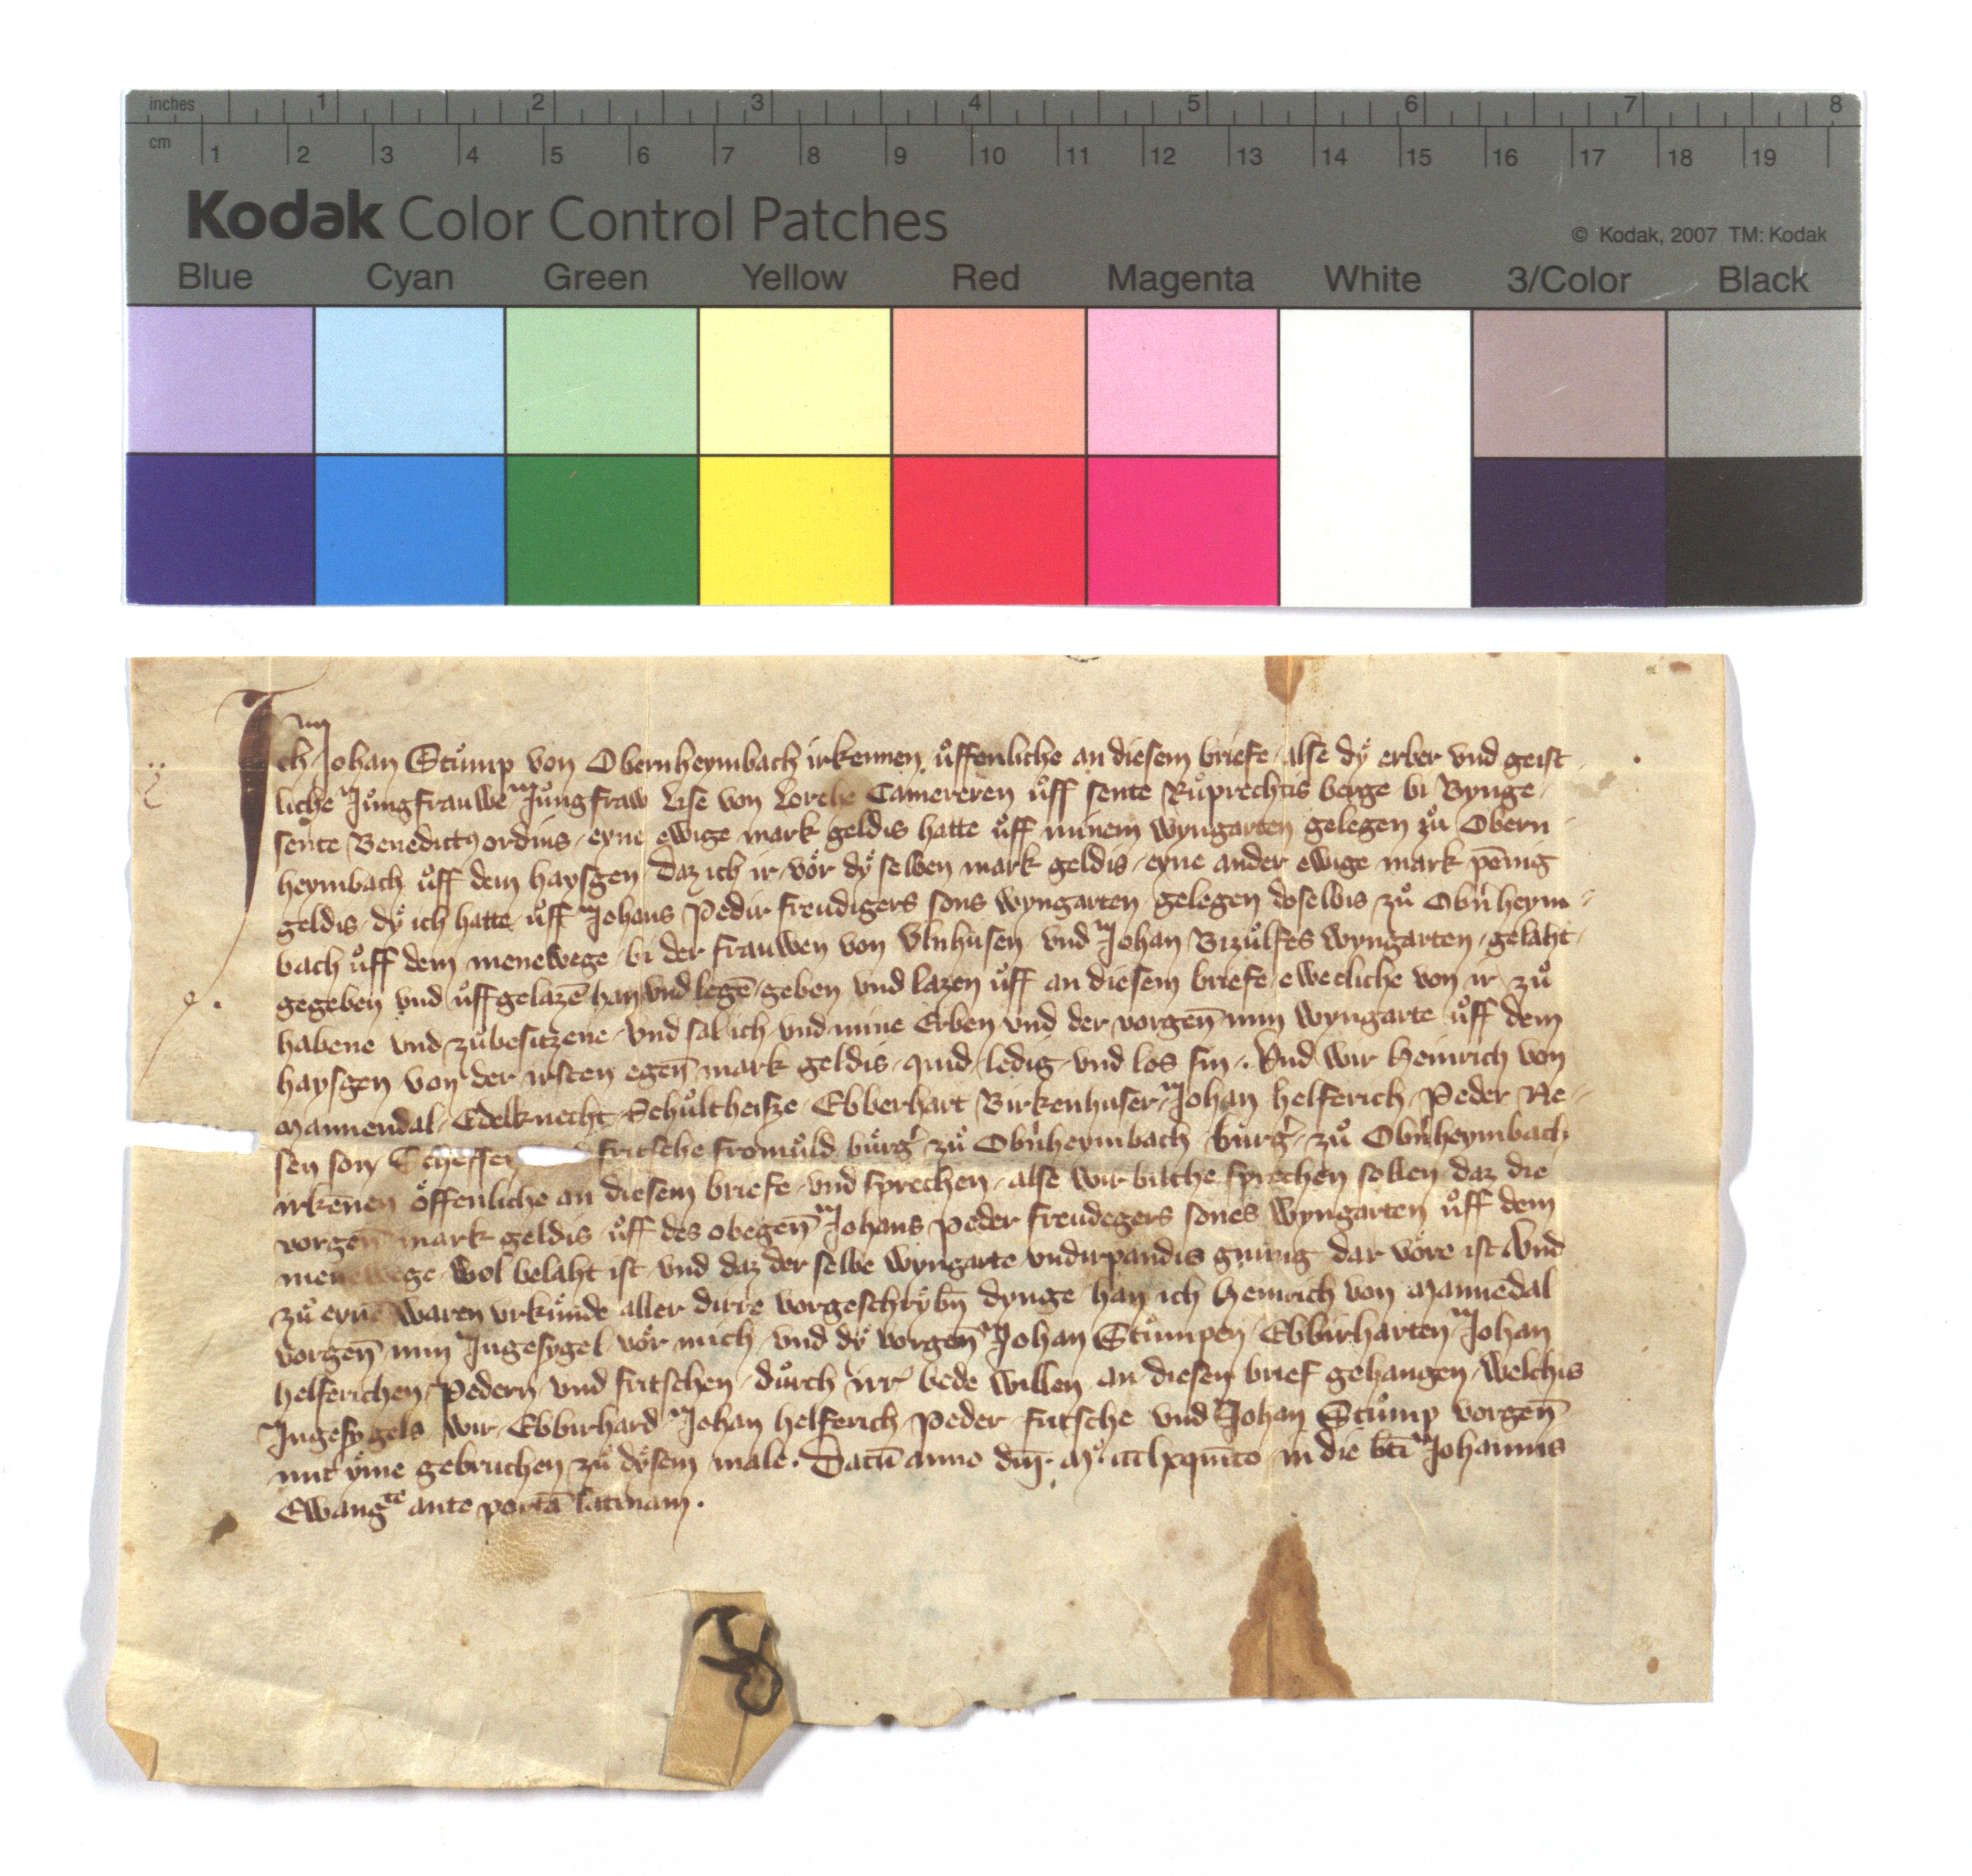 inches 1 2 3 4 5 6 7 8
cm 1 2 3 4 5 6 7 8 9 10 11 12 13 14 15 16 17 18 19
Kodak Color Control Patches
© Kodak, 2007 TM: Kodak
Blue Cyan Green Yellow Red Magenta White 3/Color Black
Ich Johan Stůmp von Obernheymbach irkennen ůffenliche an diesem briefe alse dy erber vnd geist
liche Jůngfrauwe Jůngfraw Lise von Lorche Camereren ůff sente Růprechtis berge bi Bynge
sente Benedicty ordins eyne ewige mark geldis hatte ůff minem wyngarten gelegen zů Obern
heymbach ůff dem haysgen daz ich ir vor dy selben mark geldis eyne ander ewige mark pēnig
geldis dy ich hatte ůff Johans Pedir freudigers sons wyngarten gelegen doselbis zů Obn̄heym
bach ůff dem menewege bi der frauwen von Vlnhusen vnd Johan Bizůlfes wyngarten gelaht
gegeben vnd ůffgelazē han vnd legē geben vnd lazen ůff an diesem briefe ewecliche von ir zů
habene vnd zůbesitzene vnd sal ich vnd mine Erben vnd der vorgen̄ min wyngarte ůff dem
haysgen von der irsten egen̄ mark geldis quid ledig vnd los sin. Vnd wir Heinrich von
Mannendal Edelknecht Schůltheisze Ebberhart Birkenhuser Johan helferich Peder Re
sen son Scheffen fritsche fromůld bůrḡ zů Obn̄heymbach bůrḡ zů Obn̄heymbach
irkenen offenliche an diesem briefe vnd sprechen alse wir biliche sprechen sollen daz die
vorgen̄ mark geldis ůff des obegen̄ Johans peder freudegers sones wyngarten ůff dem
menewege wol belaht ist vnd daz der selbe wyngarte vndirpandis gnůng dar vore ist Vnd
zů eynē waren vrkůnde aller dirre vorgeschrybn̄ dynge han ich Heinrich von Mannēdal
vorgen̄ min Ingesygel vor mich vnd dy vorgen̄ Johan Stůmpen Ebbirharten Johan
helferichen Pedern vnd fritschen důrch irr bede willen an diesen brief gehangen welchis
Ingesygels wir Ebbirhard Johan helferich Peder fritsche vnd Johan Stůmp vorgen̄
mit yme gebruchen zů dysem male. Datū anno dn̄i. Mo. ccclxquīto in die bti Johannis
Ewangte ante portā latinam.